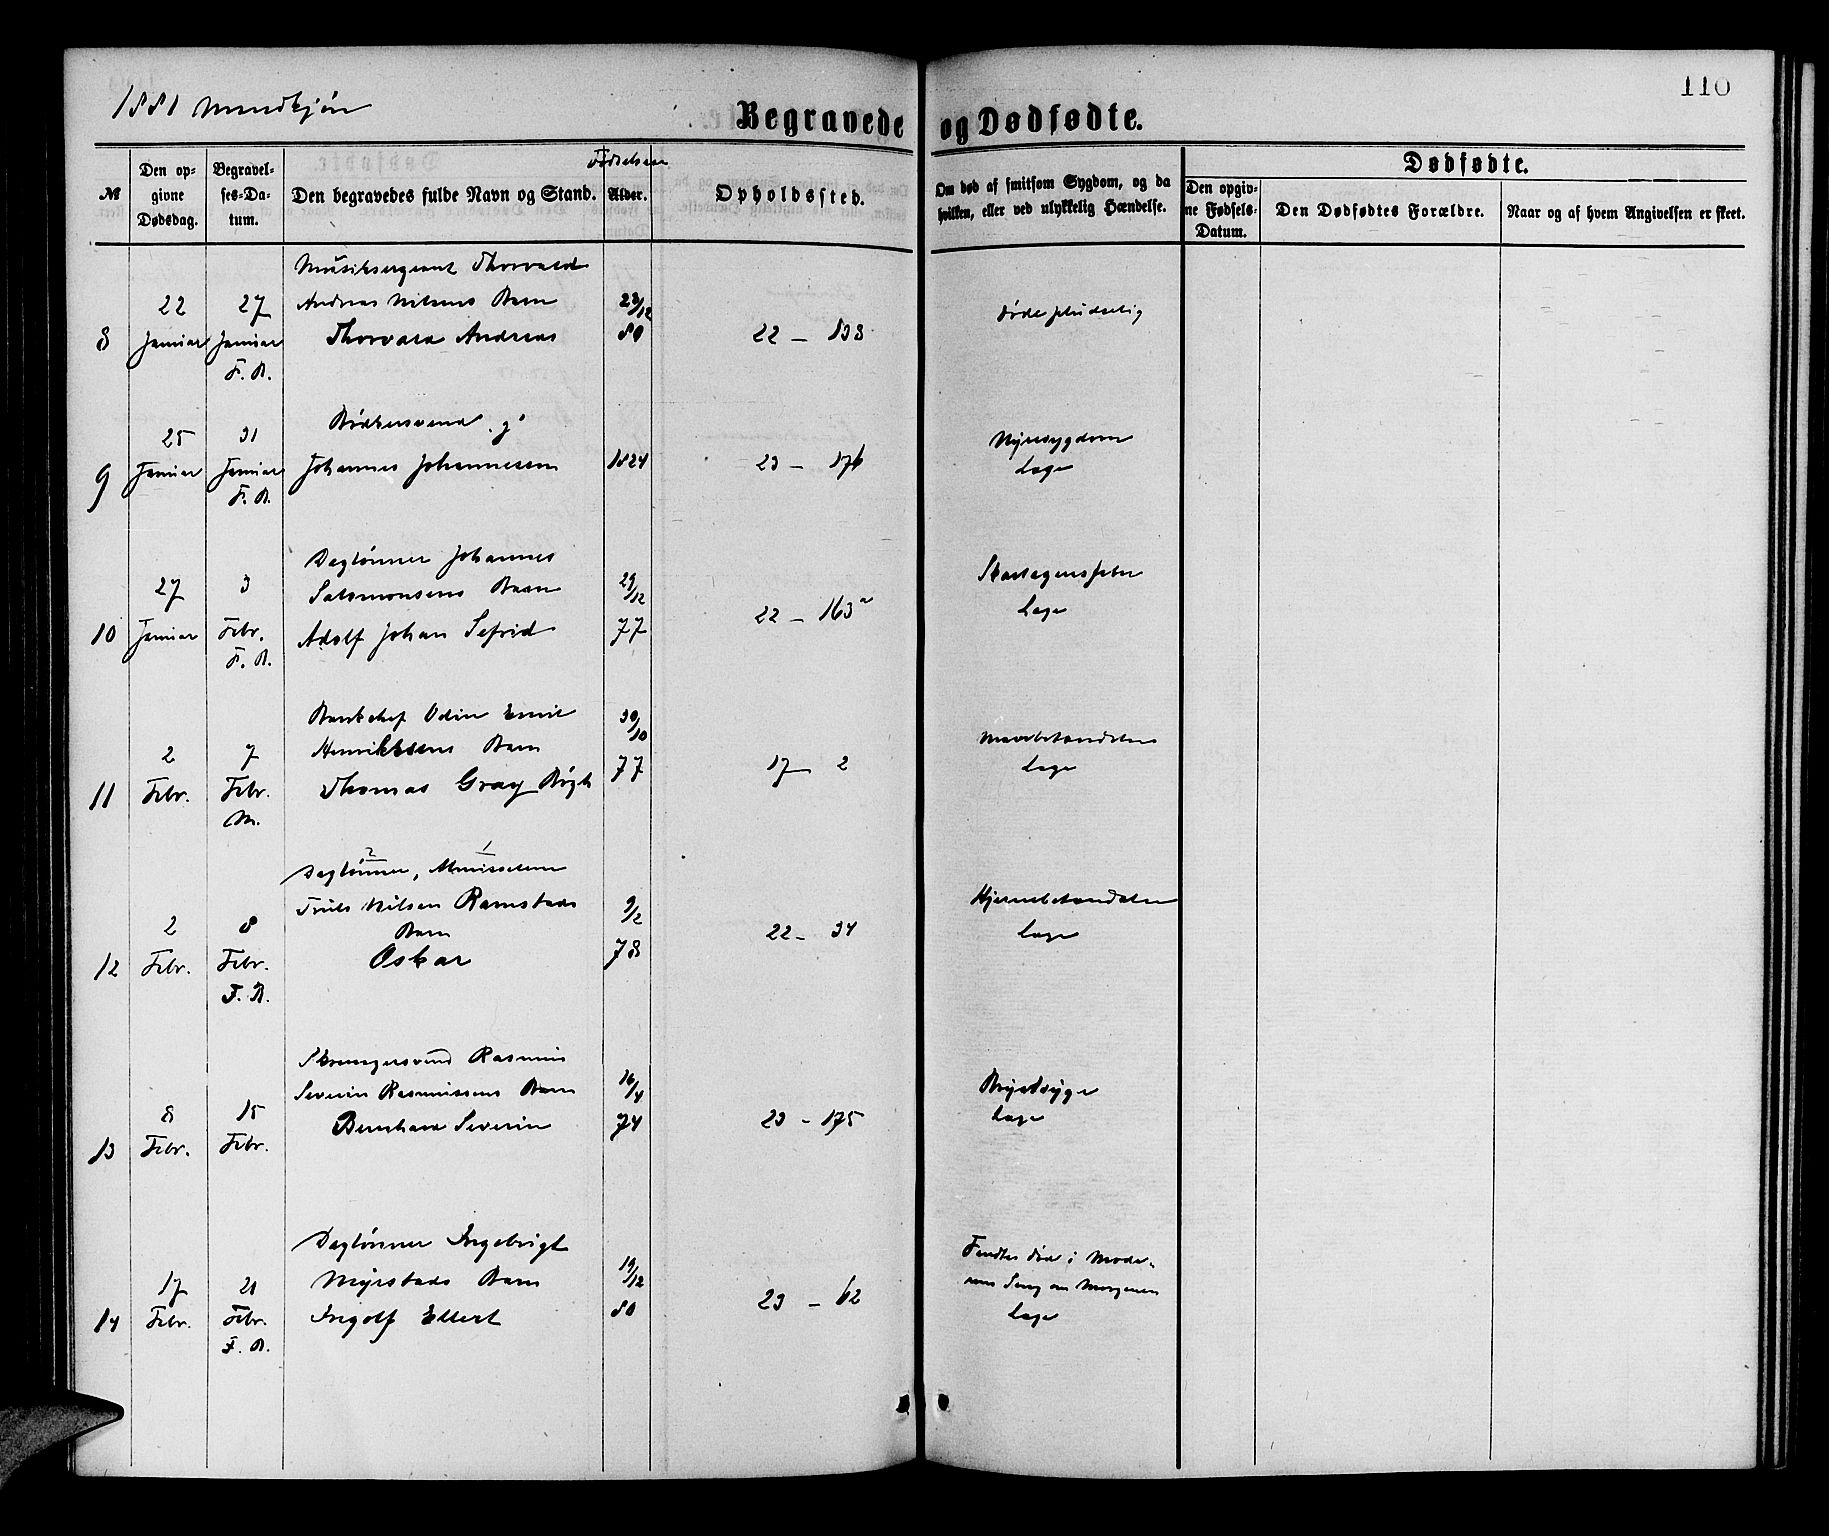 1881 Mandkjøn
110
Begravede og Dødfødte.
№
Den op-
givne
Dødsdag.
Begravel-
ses-Da-
tum.
Den begravedes fulde Navn og Stand.
Fødselsaar
Alder.
Opholdssted.
Om død af smitsom Sygdom, og da
hvilken, eller ved ulykkelig Hændelse.
Dødfødte.
Den opgiv-
ne Fødsels-
Datum.
Den Dødfødtes Forældre.
Naar og af hvem Angivelsen er skeet.
8
22
Januar
27
Januar
F. B.
Musiksergeant Thorvald
Andreas Nilsens Barn
Thorvald Andreas
23/12
80
22 - 138
Døde pludselig
9
25
Januar
31
Januar
F. B.
Bødkersvend g
Johannes Johannesen
1824
23 - 176
Nyresygdom
Læge
10
27
Januar
3
Febr.
F. B.
Daglønner Johannes
Salomonsens Barn
Adolf Johan Sefrid
29/12
77
22 - 163 a
Skarlagensfeber
Læge
11
2
Febr.
7
Febr.
M.
Bankchef Odin Emil
Henriksens Barn
Thomas Gray Bøgh
30/10
77
17 - 2
Læge
12
2
Febr.
8
Febr.
F. B.
2 1
Daglønner,
Truls Nilsen Ramstads
Barn
Oskar
9/2
78
22 - 34
Hjernebetændelse
Læge
13
8
Febr.
15
Febr.
Rasmus
Severin Rasmussens Barn
Bernhard Severin
16/4
74
23 - 175
Brystsyge
Læge
14
17
Febr.
21
Febr.
F. B.
Daglønner Ingebrigt
Myrstads Barn
Ingolf Ellert
19/12
80
23 - 62
Fandtes død i Mode-
rens Seng om Morgenen
Læge